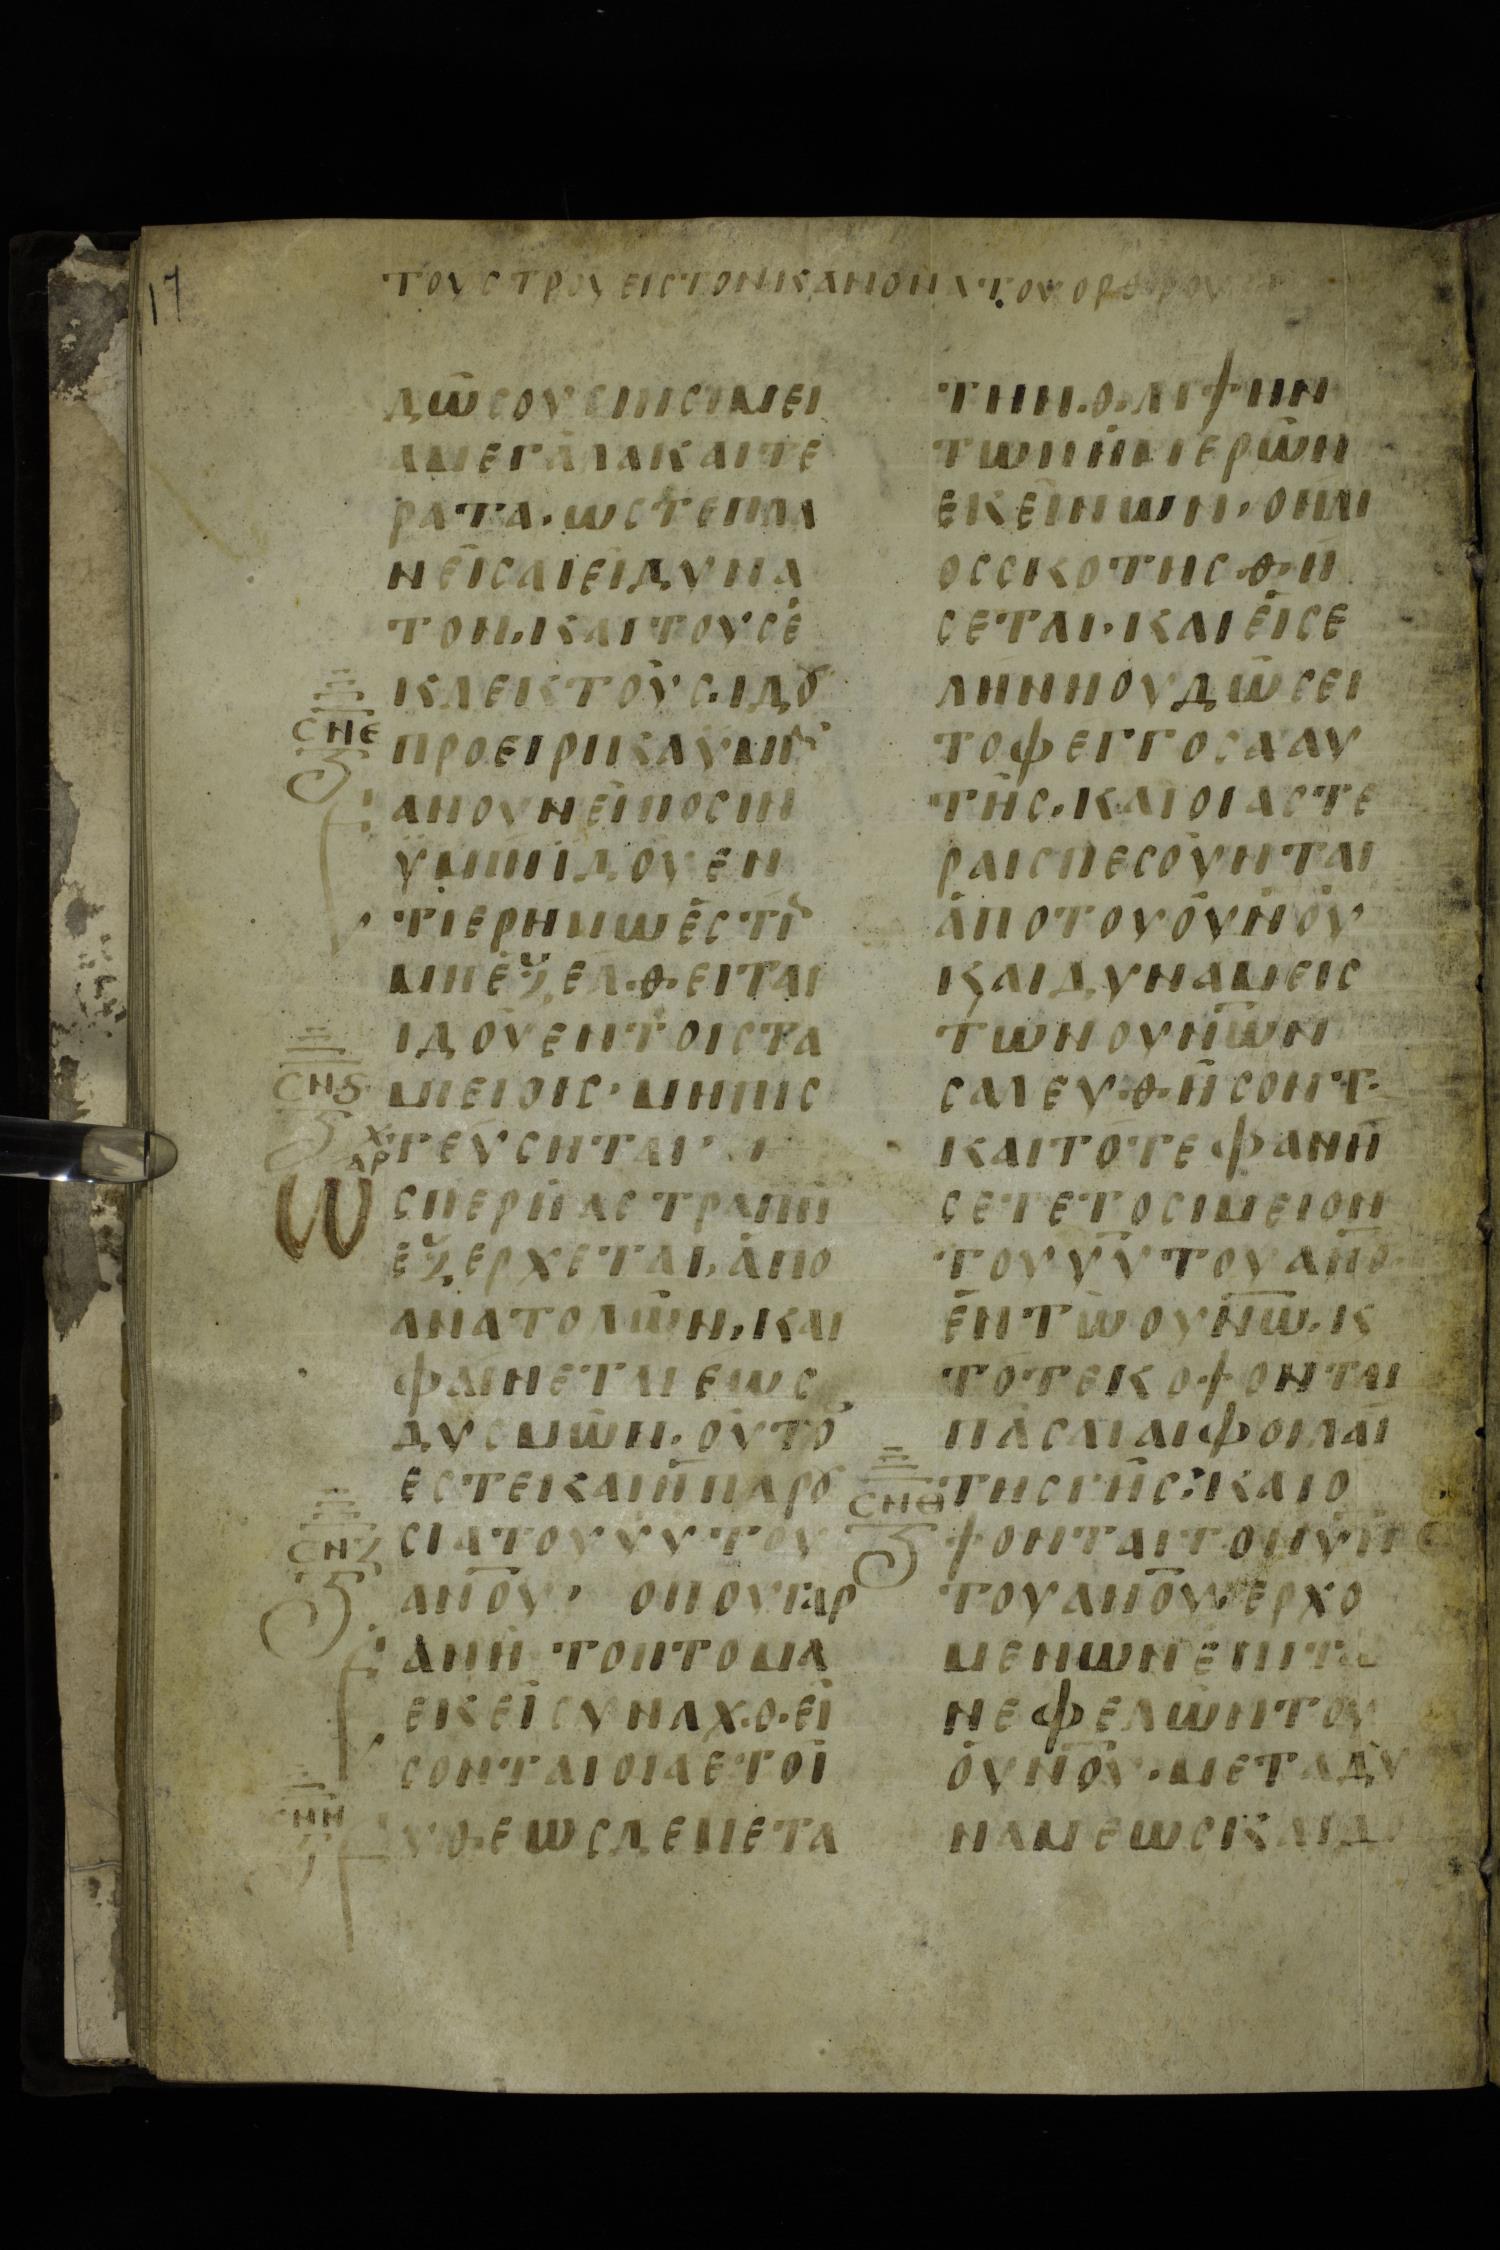 17
ΤΟΥ СΤΡΟΥ ΕΙС ΤΟΝ ΚΑΝΟΝΑ ΤΟΥ ΟΡΘΡΟΥ
ΔΩСΟΥСΙΝ СΙΜΕΙ
Α ΜΕΓΑΛΑ ΚΑΙ ΤΕ
ΡΑΤΑ· ΩСΤΕ ΠΛΑ
ΝΕΙСΑΙ ΕΙ ΔΥΝΑ
ΤΟΝ, ΚΑΙ ΤΟΥС Ε
ΚΛΕΚΤΟΥС· ΙΔΟΥ
СΝΕ ΠΡΟΕΙΡΗΚΑ ΥΜΗΝ
ΑΝ ΟΥΝ ΕΙΠΟСΙΝ
ΥΜΙΝ ΙΔΟΥ ΕΝ
ΤΙ ΕΡΗΜΩ ΕСΤΙΝ
ΜΗ ΕΞΕΛΘΕΙΤΑΙ
ΙΔΟΥ ΕΝ ΤΟΙС ΤΑ
СΝϚ ΜΕΙΟΙС· ΜΗ ΠΙС
ΤΕΥСΗΤΑΙ·
ΧΑΡ
ΩСΠΕΡ Η ΑСΤΡΑΠΗ
ΕΞΕΡΧΕΤΑΙ, ΑΠΟ
ΑΝΑΤΟΛΩΝ, ΚΑΙ
ΦΑΙΝΕΤΑΙ ΕΩС
ΔΥСΜΩΝ· ΟΥΤΟС
ΕСΤΕ ΚΑΙ Η ΠΑΡΟΥ
СΝΖ СΙΑ ΤΟΥ ΥΥ ΤΟΥ
ΑΝΟΥ, ΟΠΟΥ ΓΑΡ
ΑΝ Η ΤΟ ΠΤΟΜΑ
ΕΚΕΙ СΥΝΑΧΘΕΙ
СΟΝΤΑΙ ΟΙ ΑΕΤΟΙ
СΝΗ ΥΘΕΩС ΔΕ ΜΕΤΑ
ΤΗΝ ΘΛΙΨΗΝ
ΤΩΝ ΗΜΕΡΩΝ
ΕΚΕΙΝΩΝ, Ο ΗΛΙ
ΟС СΚΟΤΗСΘΗ
СΕΤΑΙ· ΚΑΙ ΕΙ СΕ
ΛΗΝΗ ΟΥ ΔΩСΕΙ
ΤΟ ΦΕΓΓΟС ΑΥ
ΤΗС, ΚΑΙ ΟΙ ΑСΤΕ
ΡΑΙС ΠΕСΟΥΝΤΑΙ
ΑΠΟ ΤΟΥ ΟΥΝΟΥ
ΚΑΙ ΔΥΝΑΜΕΙС
ΤΩΝ ΟΥΝΩΝ
СΑΛΕΥΘΗСΟΝΤ
ΚΑΙ ΤΟΤΕ ΦΑΝΗ
СΕΤΕ ΤΟ СΙΜΕΙΟΝ
ΤΟΥ ΥΥ ΤΟΥ ΑΝΟΥ
ΕΝ ΤΩ ΟΥΝΩ, Κ
ΤΟΤΕ ΚΟΨΟΝΤΑΙ
ΠΑСΑΙ ΑΙ ΦΟΙΛΑΙ
СΝΘ ΤΗС ΓΗС: ΚΑΙ Ο
ΨΟΝΤΑΙ ΤΟΝ ΥΝ
ΤΟΥ ΑΝΟΥ, ΕΡΧΟ
ΜΕΝΩΝ ΕΠΙ ΤΩ
ΝΕΦΕΛΩΝ ΤΟΥ
ΟΥΝΟΥ· ΜΕΤΑ ΔΥ
ΝΑΜΕΩС ΚΑΙ ΔΟ